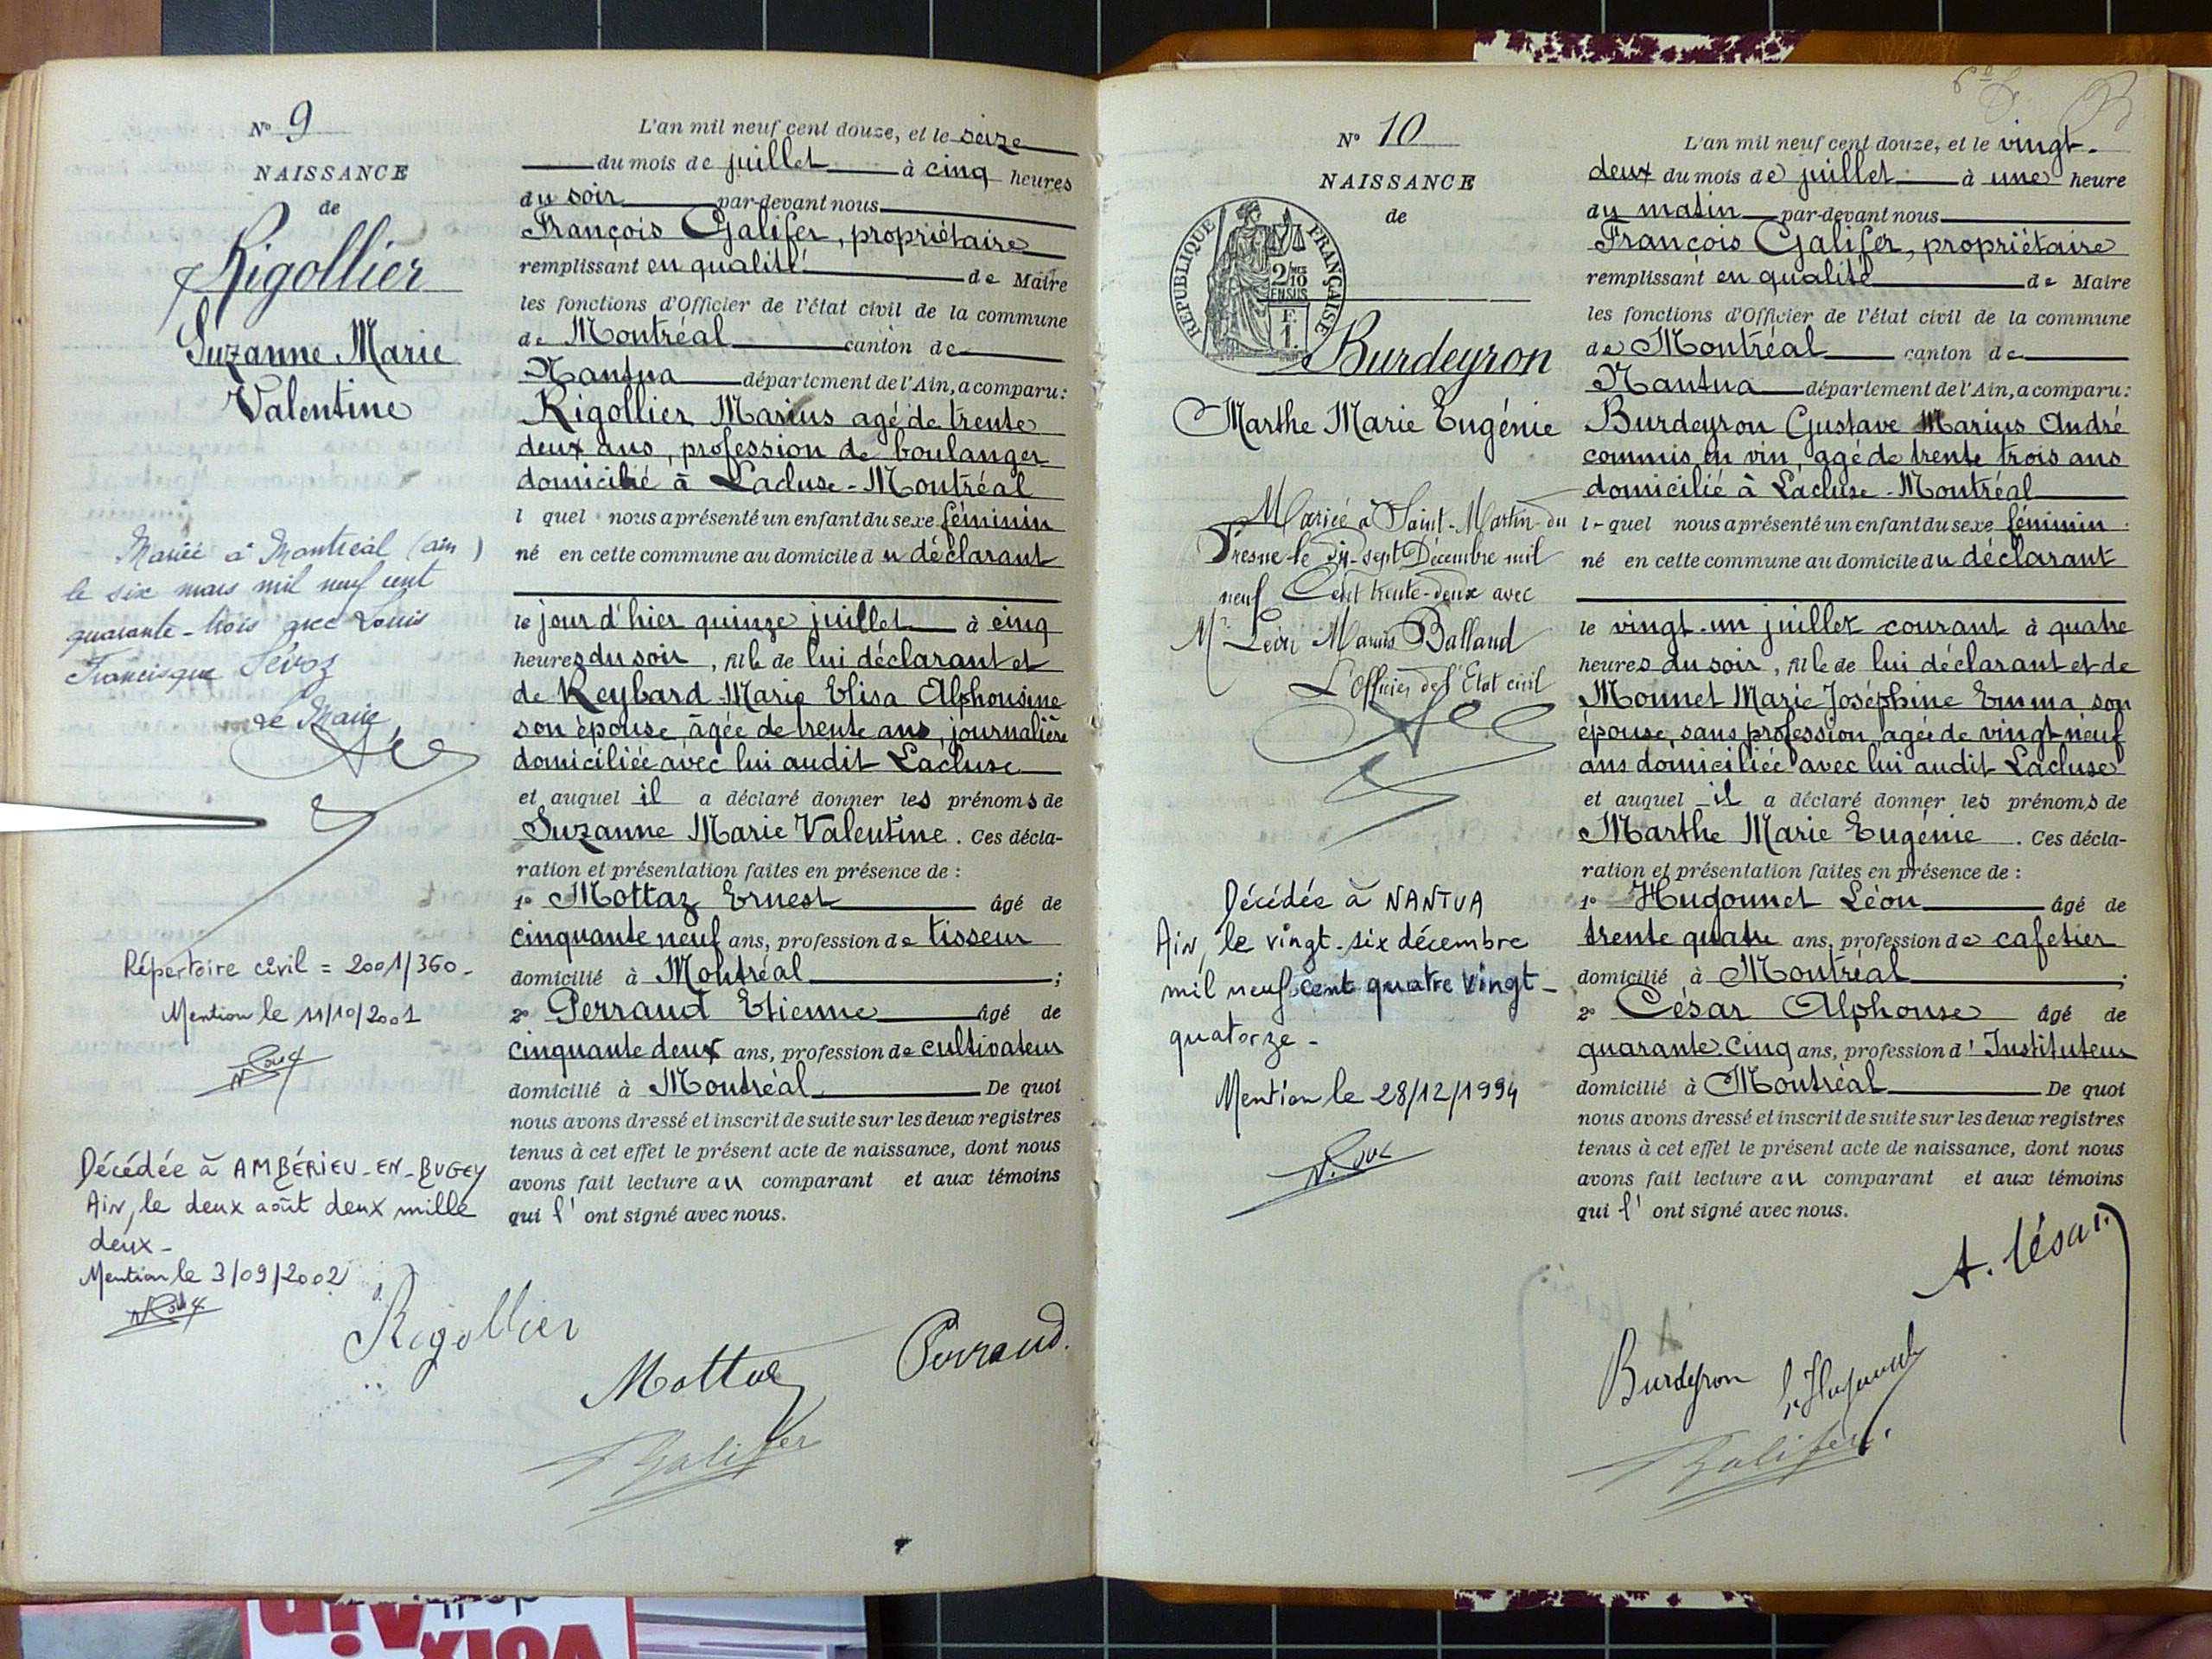 N° 9
NAISSANCE
de
Rigollier
Suzanne Marie
Valentine
Mariée à Montréal (ain)
le six mars mil neuf cent
quarante-trois avec Louis
Francisque Sévoz
Le Maire,
Répertoire civil = 2001/360-
Mention le 11/10/2001
Décédée à AMBÉRIEU-EN-BUGEY
Ain, le deux août deux mille
deux-
Mention le 3/09/2002
L'an mil neuf cent douze, et le seize
du mois de juillet à cinq heures
du soir par-devant nous
François Galifer, propriétaire
remplissant en qualité de Maire
les fonctions d'Officier de l'état civil de la commune
de Montréal canton de
Nantua département de l'Ain, a comparu:
Rigollier Marius agé de trente
deux ans, profession de boulanger
domicilié à Lacluse-Montréal
l quel nous a présenté un enfant du sexe féminin
né en cette commune au domicile du déclarant
le jour d'hier quinze juillet à cinq
heures du soir, fille de lui déclarant et
de Reybard Marie Elisa Alphonsine
son épouse âgée de trente ans, journalière
domiciliée avec lui audit Lacluse
et auquel il a déclaré donner les prénoms de
Suzanne Marie Valentine. Ces décla-
ration et présentation faites en présence de :
1° Mottaz Ernest âgé de
cinquante neuf ans, profession de tisseur
domicilié à Montréal ;
2° Perraud Etienne âgé de
cinquante deux ans, profession de cultivateur
domicilié à Montréal. De quoi
nous avons dressé et inscrit de suite sur les deux registres
tenus à cet effet le présent acte de naissance, dont nous
avons fait lecture au comparant et aux témoins
qui l' ont signé avec nous.
Rigollier
Mottaz
Perraud.
Galifer
N° 10
NAISSANCE
de
REPUBLIQUE FRANÇAISE
2/10 mes
EN SUS
F.
1.
Burdeyron
Marthe Marie Eugénie
Mariée à Saint-Martin-du
Fresne le dix-sept Décembre mil
neuf Cent trente-deux avec
Mr Léon Marius Balland
L'Officier de l'Etat civil
Décédée à NANTUA
Ain, le vingt-six décembre
mil neuf cent quatre vingt-
quatorze-
Mention le 28/12/1994
L'an mil neuf cent douze, et le vingt-
deux du mois de juillet à une heure
du matin par-devant nous
François Galifer, propriétaire
remplissant en qualité de Maire
les fonctions d'Officier de l'état civil de la commune
de Montréal canton de
Nantua département de l'Ain, a comparu:
Burdeyron Gustave Marius André
commis en vin, agé de trente trois ans
domicilié à Lacluse-Montréal
l-quel nous a présenté un enfant du sexe féminin
né en cette commune au domicile du déclarant
le vingt-un juillet courant à quatre
heures du soir, fille de lui déclarant et de
Monnet Marie Joséphine Emma son
épouse, sans profession, agée de vingt-neuf
ans domiciliée avec lui audit Lacluse
et auquel il a déclaré donner les prénoms de
Marthe Marie Eugénie. Ces décla-
ration et présentation faites en présence de :
1° Hugonnet Léon âgé de
trente quatre ans, profession de cafetier
domicilié à Montréal ;
2° César Alphonse âgé de
quarante cinq ans, profession d'Instituteur
domicilié à Montréal De quoi
nous avons dressé et inscrit de suite sur les deux registres
tenus à cet effet le présent acte de naissance, dont nous
avons fait lecture au comparant et aux témoins
qui l' ont signé avec nous.
A. César.
Burdeyron
L. Hugonnet
Galifer.
VOIX
AIN